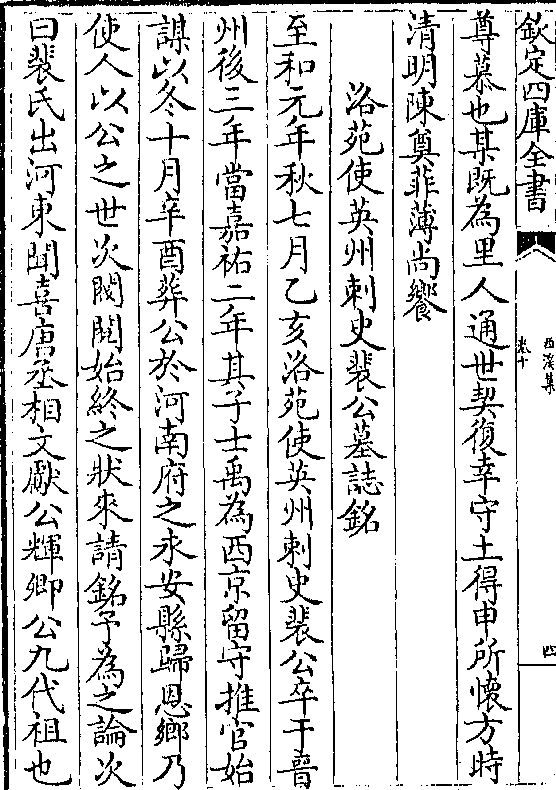 欽定四庫全書
西溪集
卷十
四
尊慕也某既為里人通世契復幸守土得申所懷方時
清明陳奠菲薄尚饗
洛苑使英州刺史裴公墓誌銘
至和元年秋七月乙亥洛苑使英州刺史裴公卒于晉
州後三年當嘉祐二年其子士禹為西京留守推官始
謀以冬十月辛酉葬公於河南府之永安縣歸恩鄉乃
使人以公之世次閥閱始終之狀來請銘予為之論次
曰裴氏出河東聞喜唐丞相文獻公輝卿公九代祖也